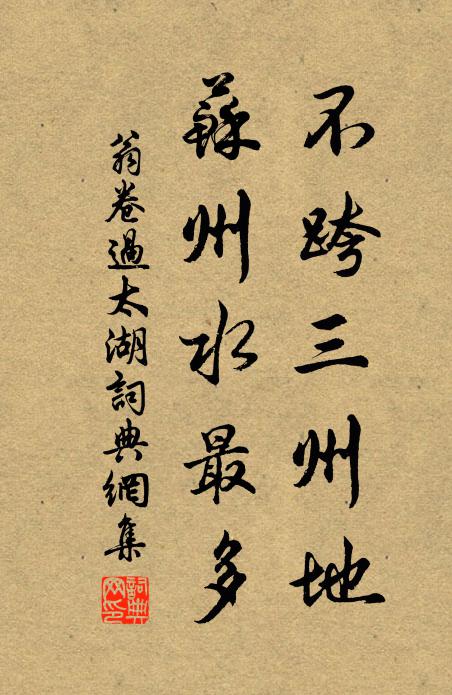 不跨三州地
蘇州水最多
翁卷過太湖詞典網集
詞典網印